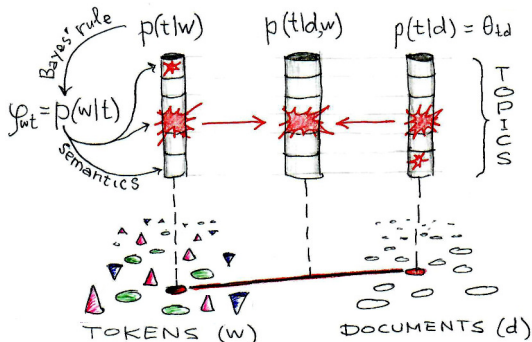 Bayes' rule
p(t|w)
p(t|d,w)
p(t|d) = θtd
φwt = p(w|t)
semantics
TOPICS
TOKENS (w)
DOCUMENTS (d)